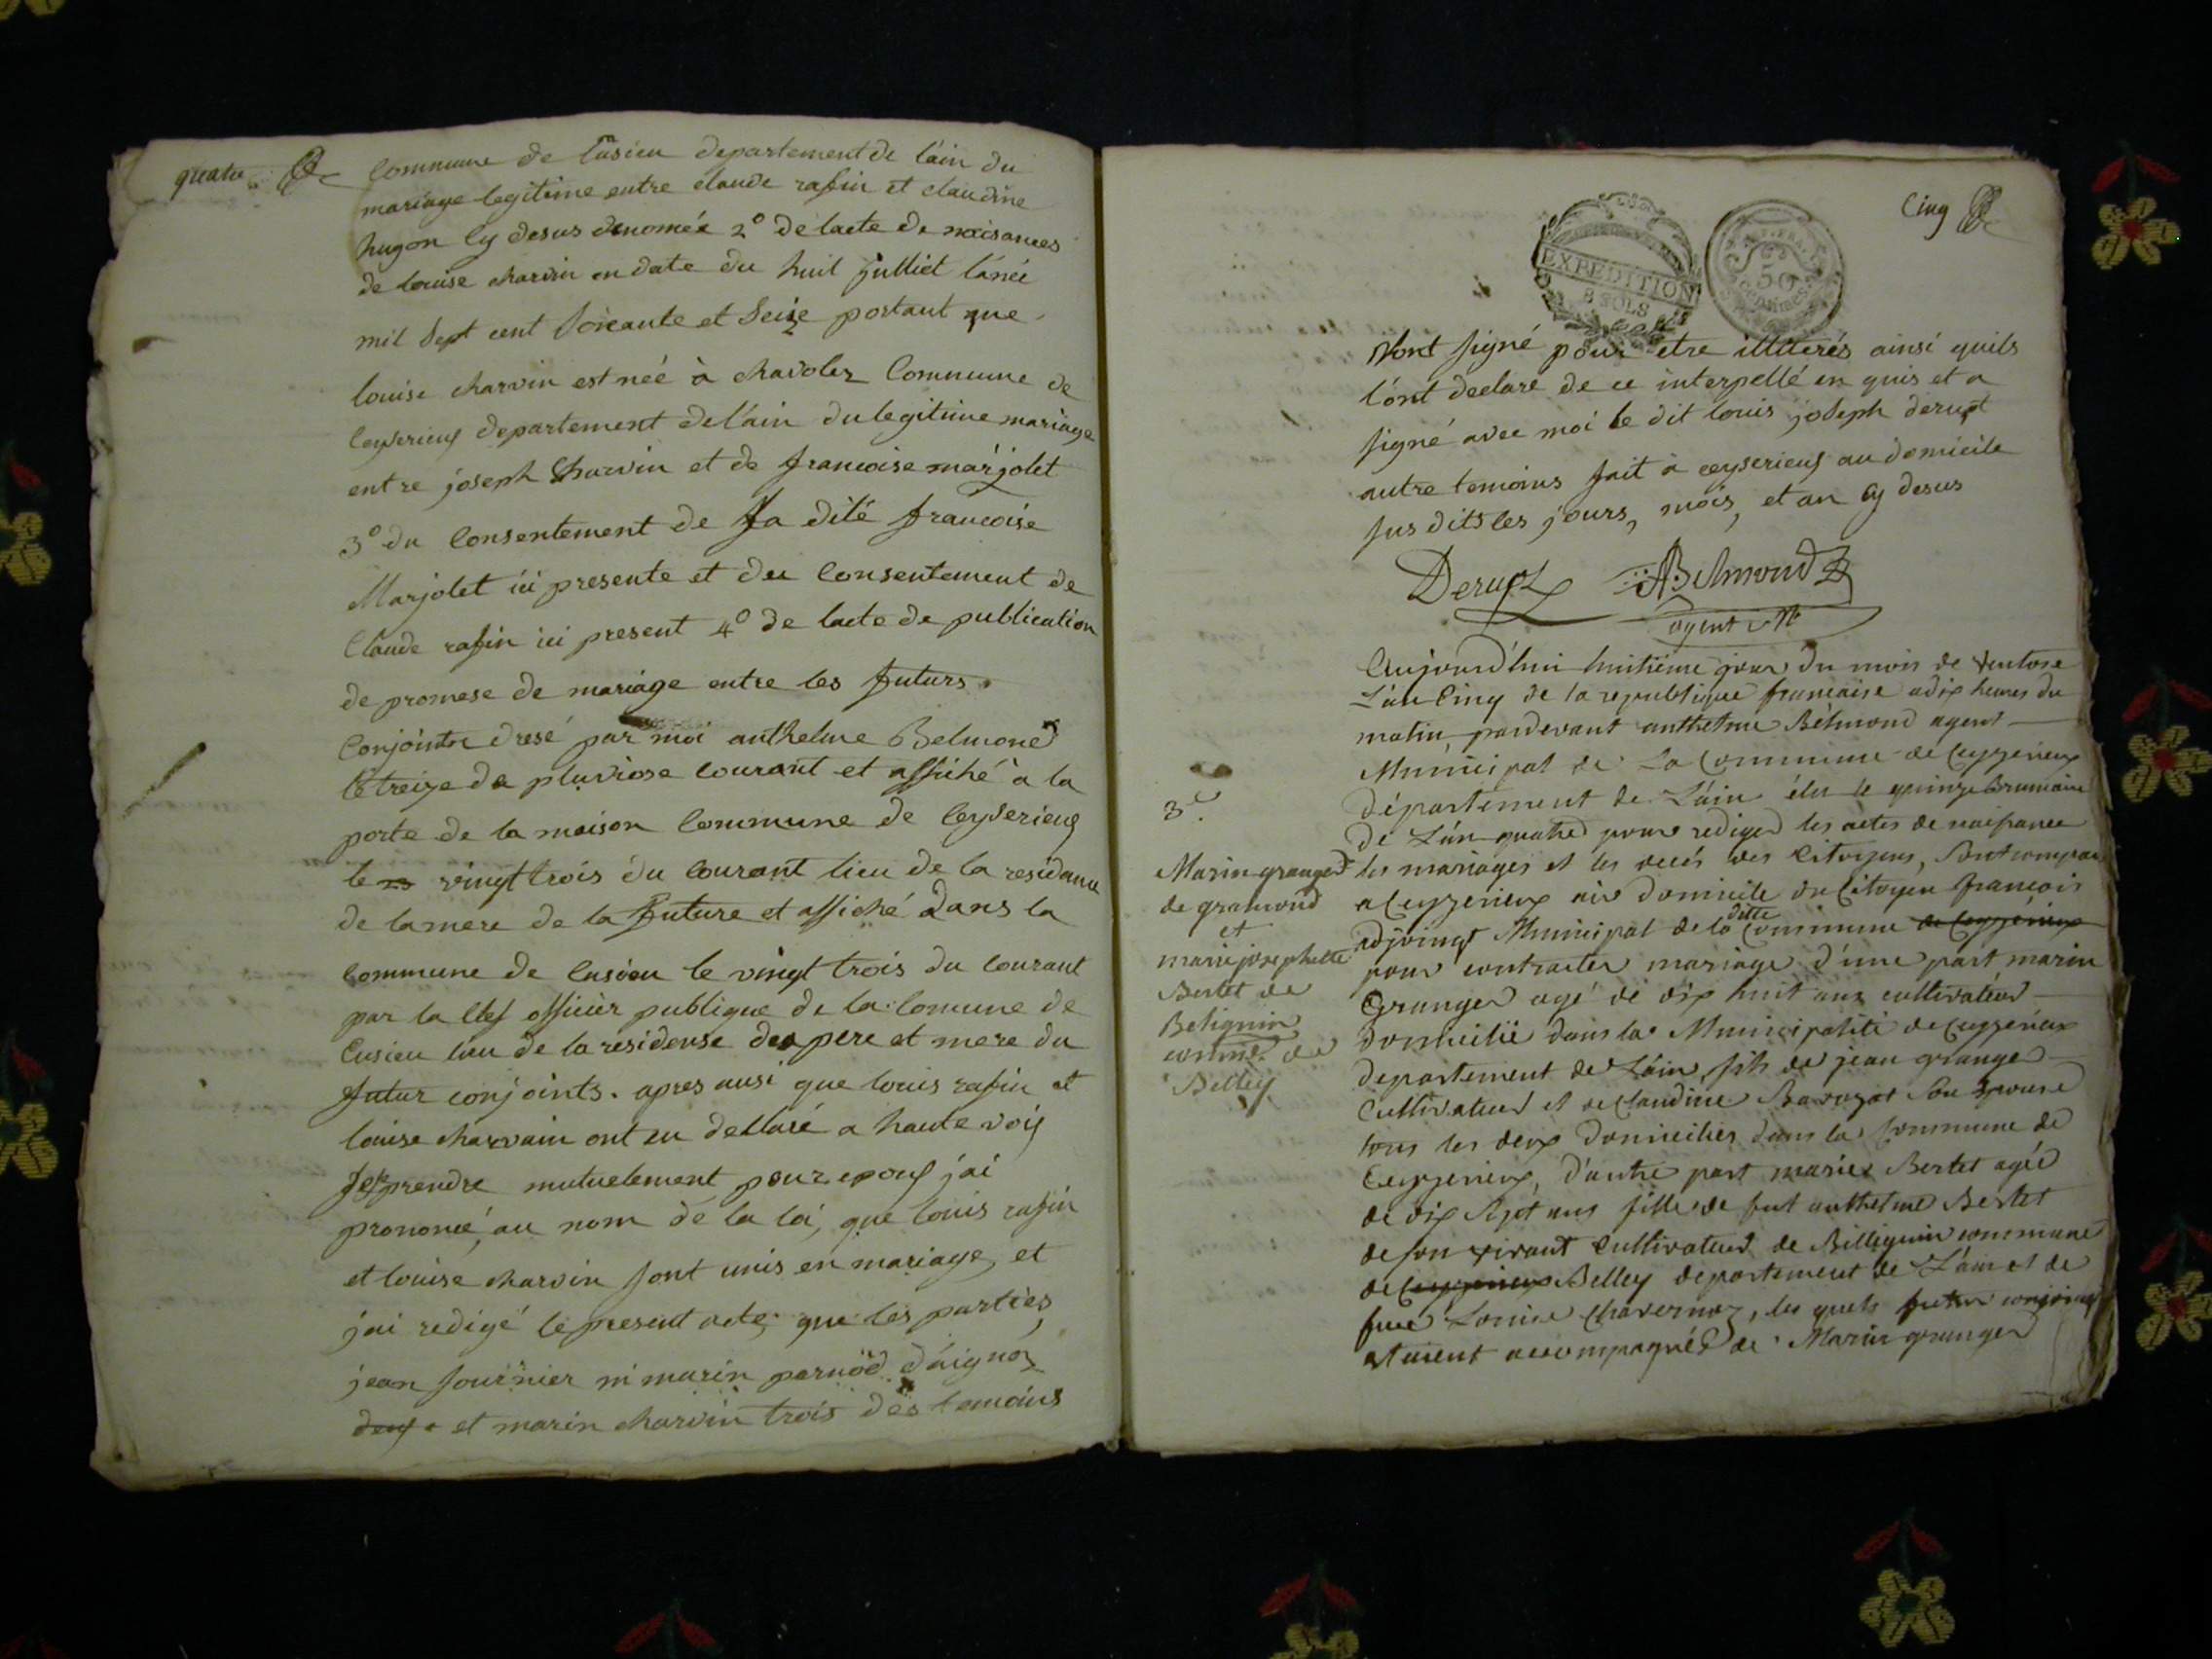 quatre
Commune de Cusieu departement de l'ain du
mariage legitime entre claude rafin et claudine
hugon Cy desus denomée 2° de lacte de naisances
de louise charvin en date du huil julliet l'anée
mil sept cent soixante et seize portant que
louise charvin est née à chavolez Commune de
Ceyserieux departement de l'ain du legitime mariage
entre joseph Charvin et de francoise marjolet
3° du Consentement de la dité francoise
Marjolet ici presente et du Consentement de
Claude rafin ici present 4° de lacte de publication
de promese de mariage entre les futurs
Conjoints dresé par moi anthelme Belmond
le treize de pluviose courant et affiché à la
porte de la maison Commune de Ceyserieux
le vingt trois du Courant lieu de la residance
de la mere de la future et affiché dans la
Commune de Cusieu le vingt trois du Courant
par la officier publique de la Comune de
Cusieu lieu de la residense des pere et mere du
futur conjoints. apres ausi que louis rafin et
louise charvain ont eu declaré a haute voix
se prendre mutuelement pour epoux j'ai
prononcé, au nom de la loi, que louis rafin
et louise charvin sont unis en mariage, et
j'ai redigé le present acte, que les parties,
jean fournier ni marin pernod d'aignoz
deux et marin charvin trois des temoins
Cinq
EXPEDITION
8 SOLS
50
centimes
N'ont signé pour etre illiterés ainsi quils
l'ont declaré de ce interpellé en quis et a
signé avec moi le dit louis joseph derupt
autre temoins fait à ceyserieux au domicile
sus dits les jours, mois, et an cy desus
Derupt ABelmond
agent
Aujourd'hui huitième jour du mois de ventose
L'an Cinq de la republique francaise a dix heures du
matin, pardevant anthelme Bélmond agent
Municipal de La Commune de Ceyzerieux
département de L'ain élu le quinze Brumaire
de L'an quatre pour rediger les actes de naissance
les mariages et les decés des Citoyens, Sont comparu
a Ceyzerieux au domicile du Citoyen francois
adjoingt Municipal de la ditte Commune de Ceyzérieux
pour contracter mariage d'une part marin
Granger agé de dix huit ans cultivateur
domicilié dans la Municipalité de Ceyzerieux
departement de L'ain, fils de jean granger
Cultivateur et de Claudine Bavozat Son Epouse
tous les deux domiciliés dans la Commune de
Ceyzerieux, d'autre part marie Bertet agée
de dix Sept ans fille de fut anthelme Bertet
de son vivant Cultivateur de Billignin commune
de Ceyzerieux Belley departement de L'ain et de
fue Louise Chavernoz, les quels futur conjoings
etaient accompagnés de Marin granger
3e.
Marin granger
de gramond
et
marie josephette
Bertet de
Belignin
comne. de
Belley